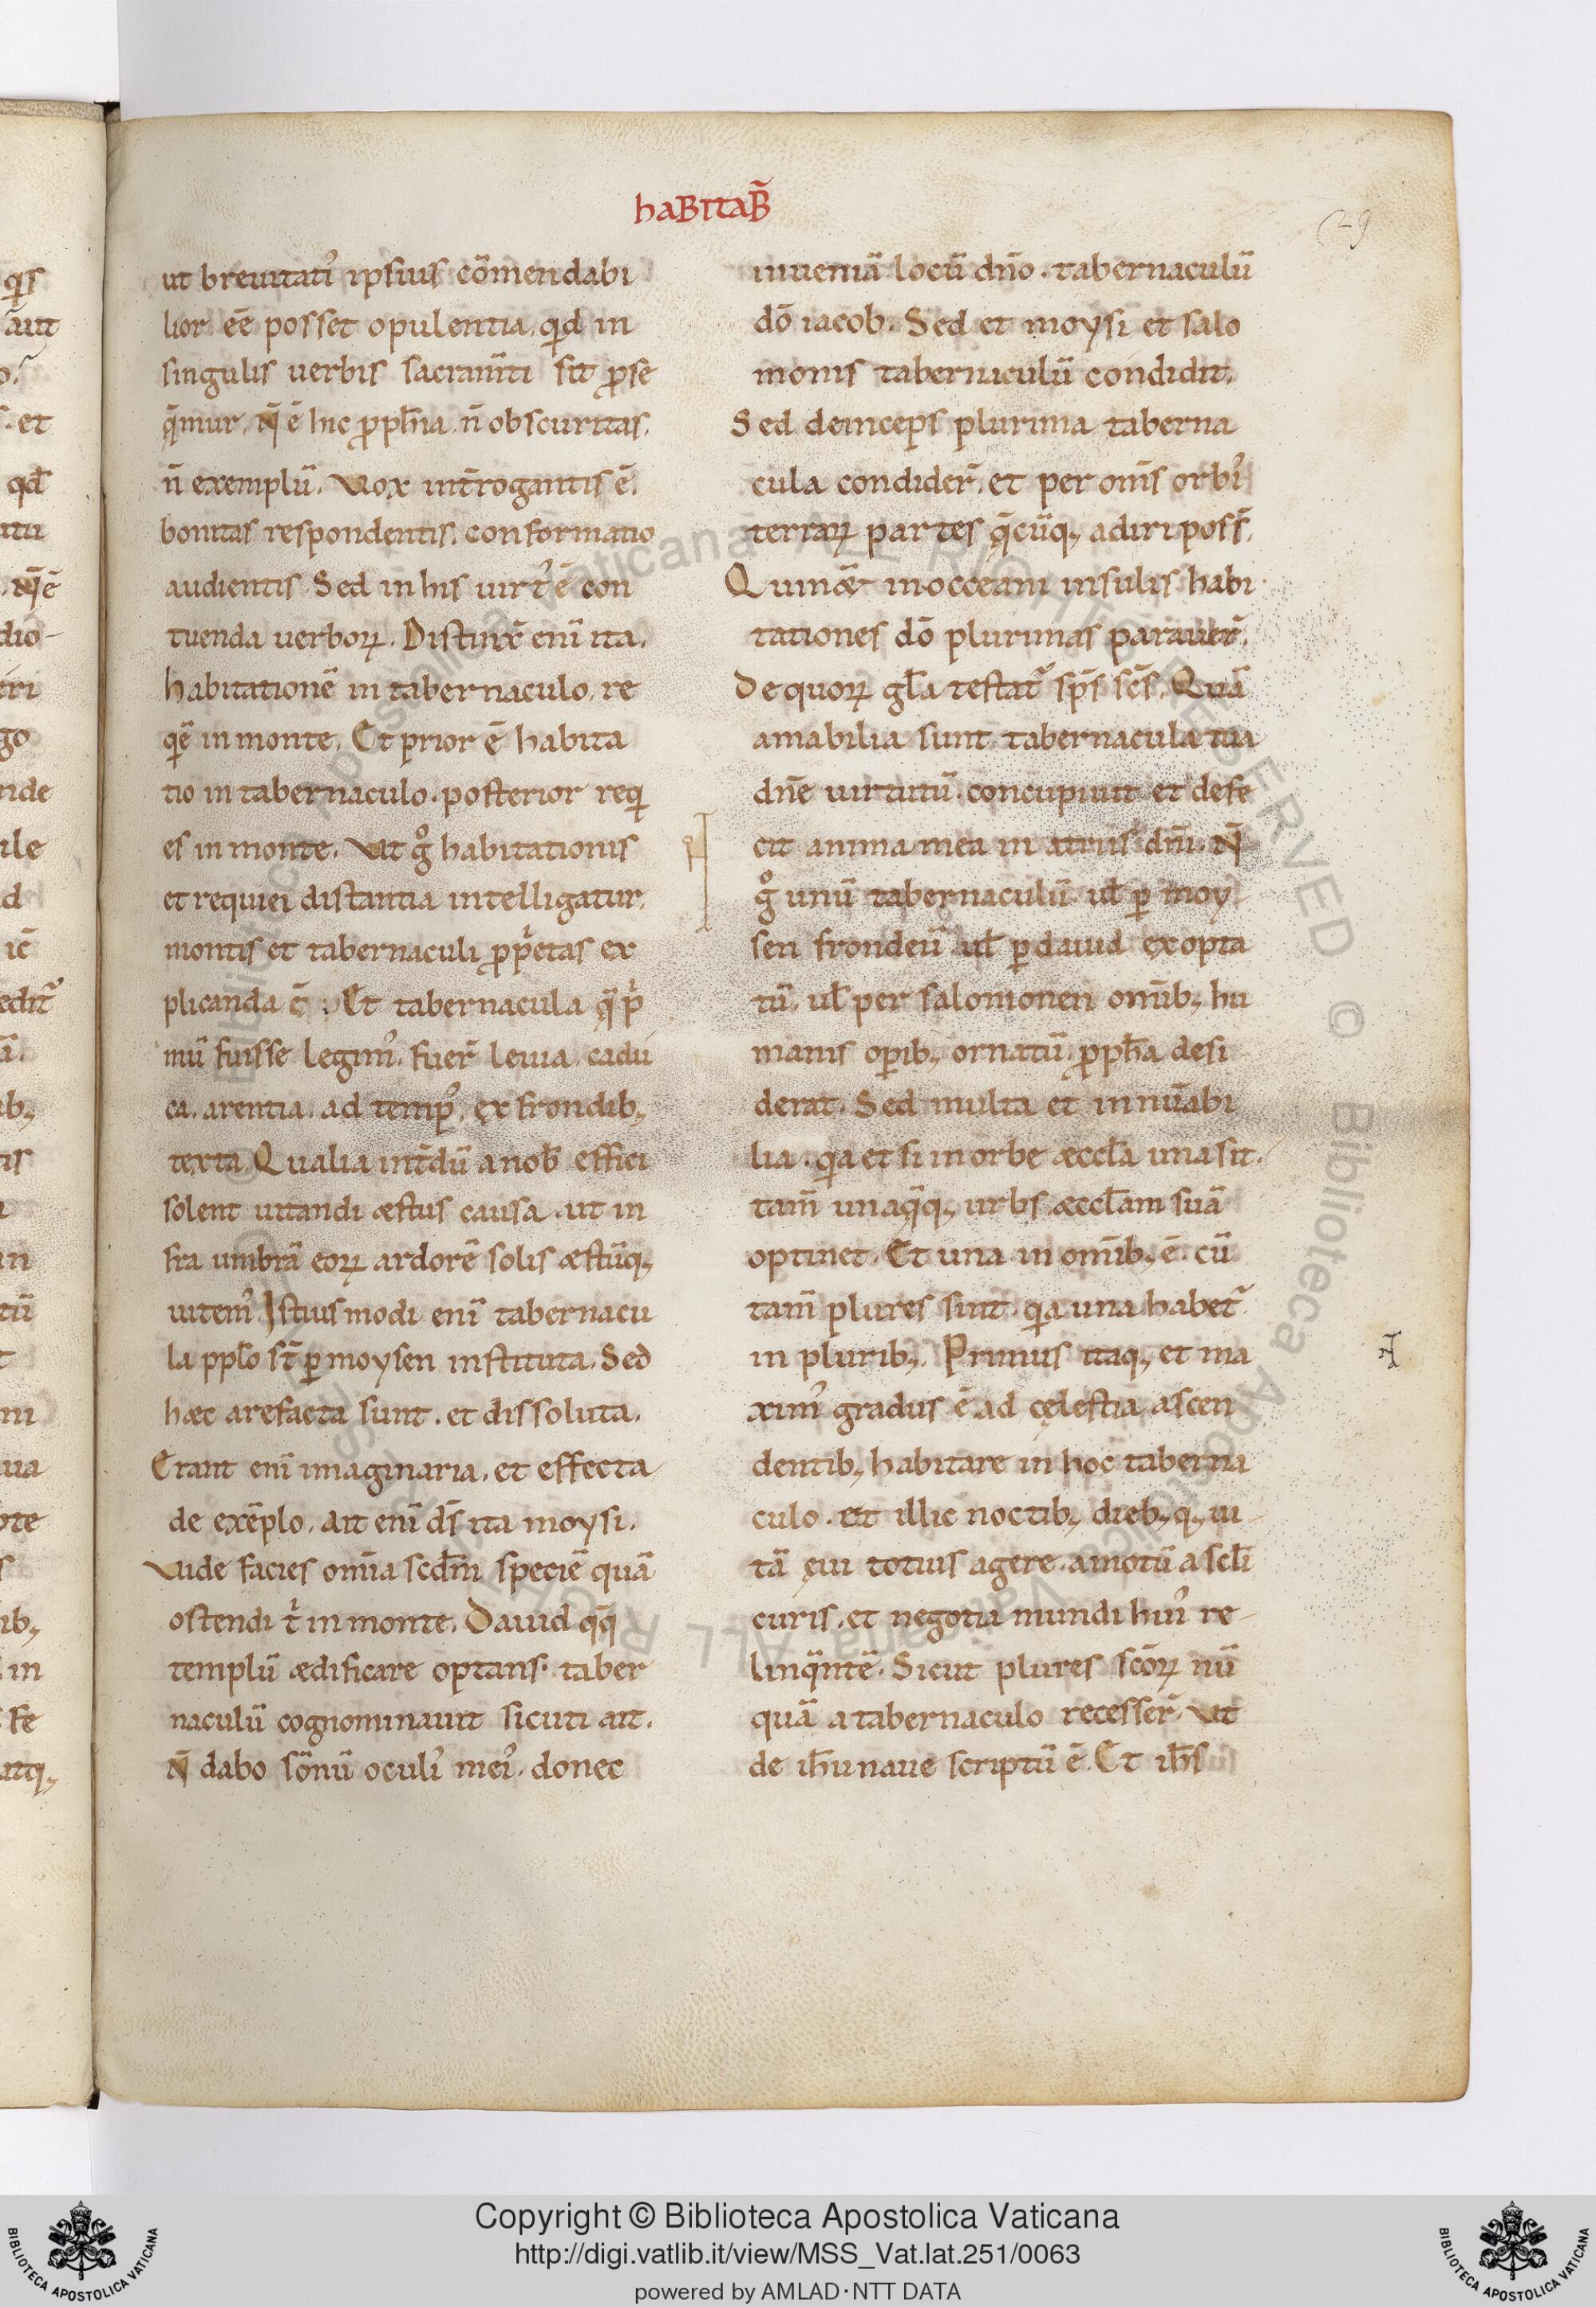 haBitaB̃
29
ut breuitati᾽ ipsius cõmendabi
lior eẽ posset opulentia. qid in
singulis uerbis sacram̃ti sit p̃se
q̃mur. Ñ ẽ hic p̱pħia. ñ obscuritas.
ñ exemplũ. Vox int̃rogantis ẽ.
bonitas respondentis. conformatio
audientis. Sed in his uirt᾽ ẽ con
tuenda uerboꝝ. Distinx̃ enĩ ita.
habitationẽ in tabernaculo. re
qẽ in monte. Et prior ẽ habita
tio in tabernaculo. posterior reqi
es in monte. Vt gͦ habitationis
et requiei distantia intelligatur.
montis et tabernaculi p̱p̃etas ex
plicanda ẽ. Et tabernacula q̃ p̃
mũ fuisse legim᾽. fuer̃ leuia. cadu
ca. arentia. ad temp᾽. ex frondib;
texta. Qualia int̃dũ a nob̃ effici
solent uitandi æstus causa. ut in
fra umbrã eoꝝ ardorẽ solis æstũq;
uitem᾽. Istius modi enĩ tabernacu
la pplo st̃ p̱ moysen instituta. Sed
hæc arefacta sunt. et dissoluta.
Erant enĩ imaginaria. et effecta
de exẽplo. ait enĩ ds̃ ita moysi.
Vide facies om̃ia scdm̃ speciẽ quã
ostendi t̃ in monte. Dauid qq̃
templũ ædificare optans. taber
naculũ cognominauit sicuti ait.
Ñ dabo sõnũ oculi᾽ mei᾽. donec
inueniã locũ dño. tabernaculũ
dõ iacob. Sed et moysi et salo
monis tabernaculũ condidit.
Sed deinceps plurima taberna
cula condider̃. et per om̃s orbi᾽
terraꝝ partes q̃cũq; adiri poss̃.
Quin & in occeani insulis habi
tationes dõ plurimas parauer̃.
De quoꝝ gl̃a testat᾽ sp̃s sc̃s. Quã
amabilia sunt tabernacula tua
dñe uirtutũ. concupiuit et defe
cit anima mea in atriis dñi. Ñ
gͦ unũ tabernaculũ. ul̃ p̱ moy
sen frondeũ. ul̃ p̱ dauid exopta
tũ. ul̃ per salomonen om̃ib; hu
manis opib; ornatũ. p̱pħa desi
derat. Sed multa et innum̃abi
lia. qia et si in orbe æccl̃a una sit.
tam̃ unaq̃q; urbs æccl̃am suã
optinet. Et una in om̃ib; ẽ. cũ
tam̃ plures sint. qia una habet᾽
in plurib;. Primus itaq; et ma
xim᾽ gradus ẽ ad cęlestia ascen
dentib; habitare in hoc taberna
culo. et illic noctib; dieb;q; ui
tã ęui totius agere. amotũ a scl̃i
curis. et negotia mundi hui᾽ re
linq̃ntẽ. Sicut plures sc̃oꝝ nũ
quã a tabernaculo recesser̃. Vt
de iħu naue scriptũ ẽ. Et iħs
Copyright © Biblioteca Apostolica Vaticana
http://digi.vatlib.it/view/MSS_Vat.lat.251/0063
powered by AMLAD·NTT DATA